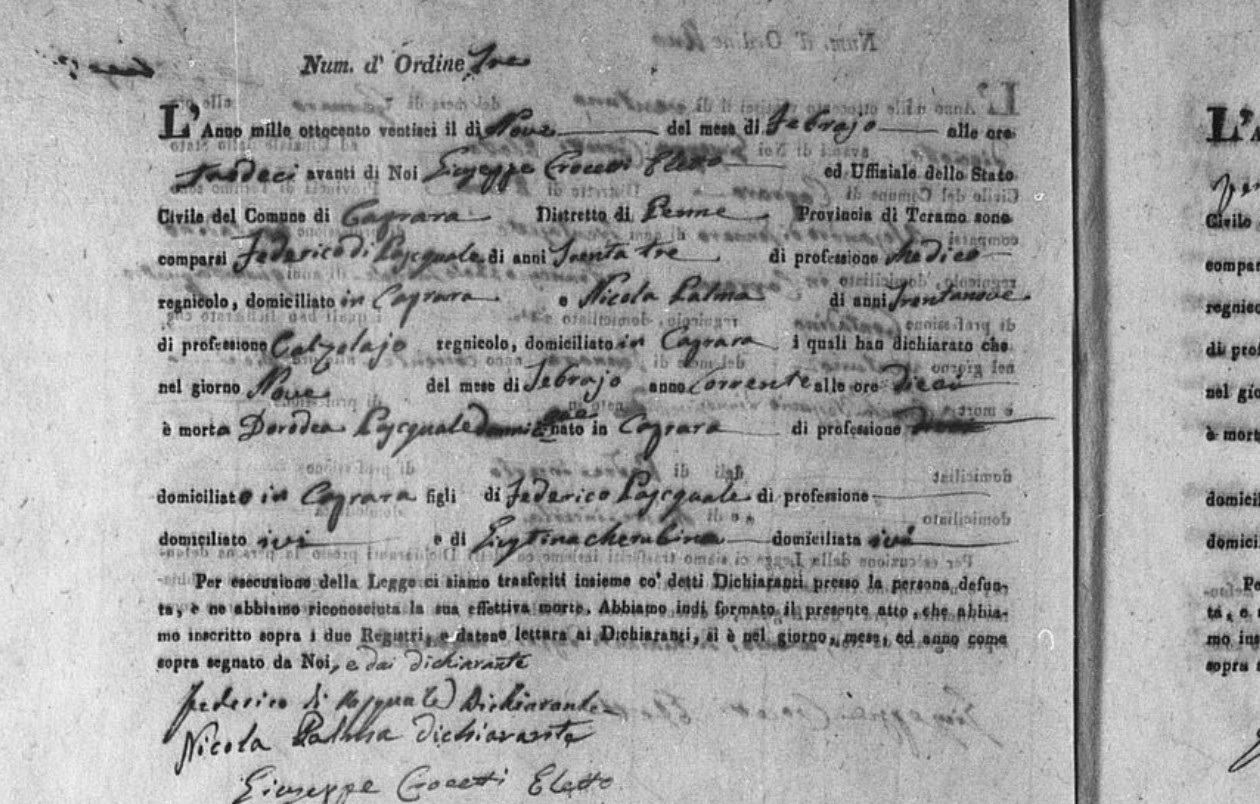 Num. d' Ordine Tre
L'Anno mille ottocento ventisei il dì Nove del mese di Febrajo alle ore
tredeci avanti di Noi Giuseppe Crocetti Eletto ed Uffiziale dello Stato
Civile del Comune di Caprara Distretto di Penne Provincia di Teramo sono
comparsi Federico di Pascquale di anni Trenta tre di professione Medico
regnicolo, domiciliato in Caprara e Nicola Palma di anni Trentanove
di professione Calzolajo regnicolo, domiciliato in Caprara i quali han dichiarato che
nel giorno Nove del mese di Febrajo anno Corrente alle ore Dieci
è morta Dorodea Pascquale nato in Caprara di professione
domiciliato in Caprara figli di Federico Pascquale di professione
domiciliato ivi e di Cherubina domiciliata ivi
Per esecuzione della Legge ci siamo trasferiti insieme co' detti Dichiaranti presso la persona defun-
ta, e ne abbiamo riconosciuta la sua effettiva morte. Abbiamo indi formato il presente atto, che abbia-
mo inscritto sopra i due Registri, e datene lettura ai Dichiaranti, si è nel giorno, mese, ed anno come
sopra segnato da Noi, e dai dichiarante
Federico di Pasquale Dichiarante
Nicola Palma dichiarante
Giuseppe Crocetti Eletto